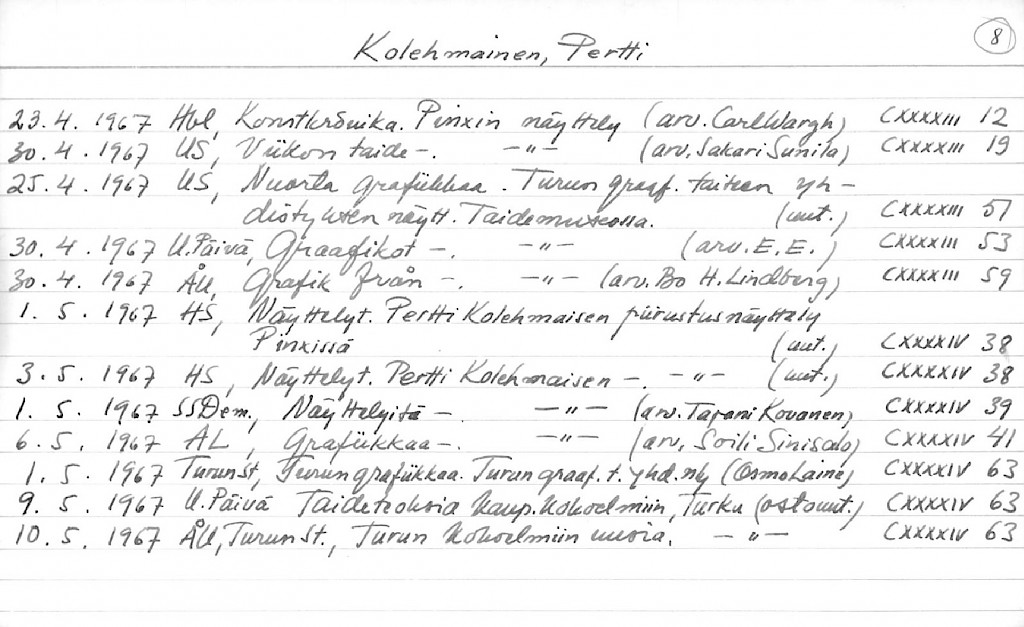 8
Kolehmainen, Pertti
23.4. 1967 Hbl, Konstkrönika. Pinxin näyttely (arv. Carl Wargh) CXXXXIII 12
30.4. 1967 US, Viikon taide -. -"- (arv. Sakari Sunila) CXXXXIII 19
25.4. 1967 US, Nuorta grafiikkaa. Turun graaf. taiteen yh-
distyksen näytt. Taidemuseossa. (uut.) CXXXXIII 51
30.4. 1967 U.Päivä, Graafikot -. -"- (arv. E.E.) CXXXXIII 53
30.4. 1967 ÅU, Grafik från -. -"- (arv. Bo H. Lindberg) CXXXXIII 59
1.5. 1967 HS, Näyttelyt. Pertti Kolehmaisen piirustusnäyttely
Pinxissä (uut.) CXXXXIV 38
3.5. 1967 HS, Näyttelyt. Pertti Kolehmaisen -. -"- (uut.) CXXXXIV 38
1.5. 1967 SSDem., Näyttelyitä -. -"- (arv. Tapani Kovanen) CXXXXIV 39
6.5. 1967 AL, Grafiikkaa -. -"- (arv. Soili Sinisalo) CXXXXIV 41
1.5. 1967 TurunSt, Turun grafiikkaa. Turun graaf. t. yhd. (Osmo Laine) CXXXXIV 63
9.5. 1967 U.Päivä Taideteoksia kaup. kokoelmiin, Turku (ostouut.) CXXXXIV 63
10.5. 1967 ÅU, TurunSt., Turun kokoelmiin uusia. -"- CXXXXIV 63